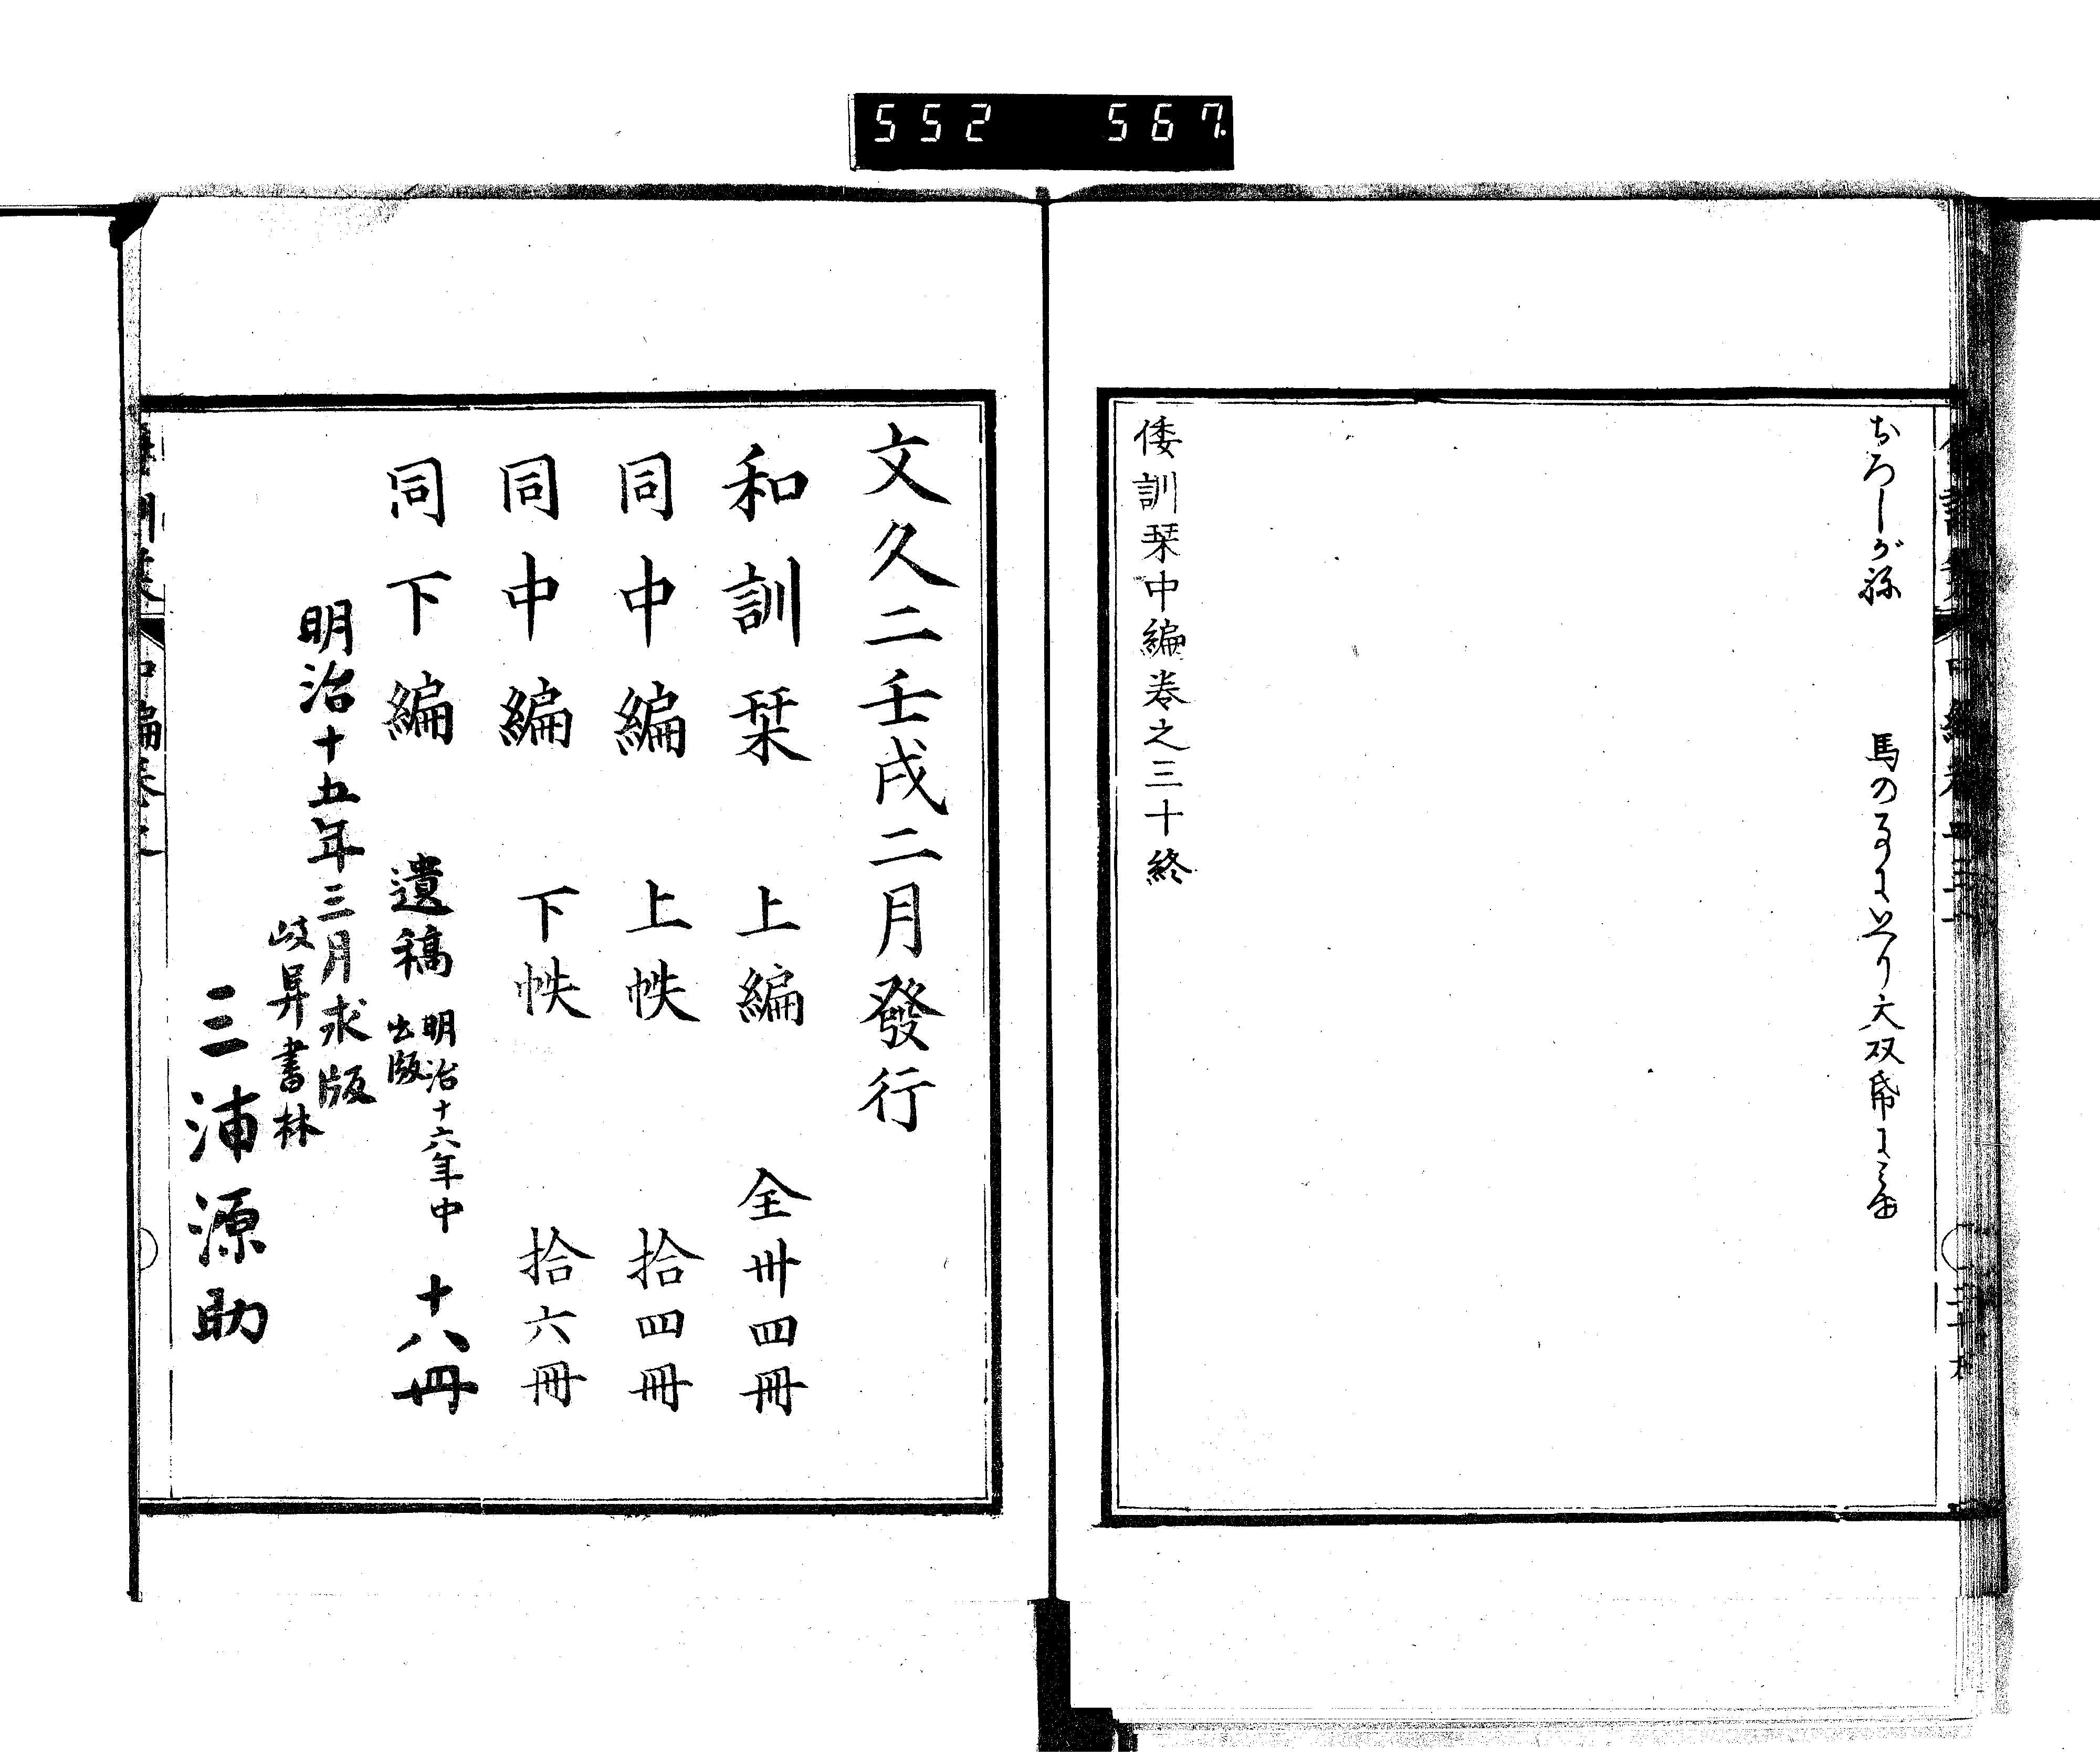 552 567
おろしがね 馬の
倭訓栞中編巻之三十終
文久二壬戌二月發行
和訓栞 上編 全卅四冊
同中編 上帙 拾四冊
同中編 下帙 拾六冊
同下編 遺稿 明治十六年中出版 十八冊
明治十五年三月求版
岐阜書林
三浦源助